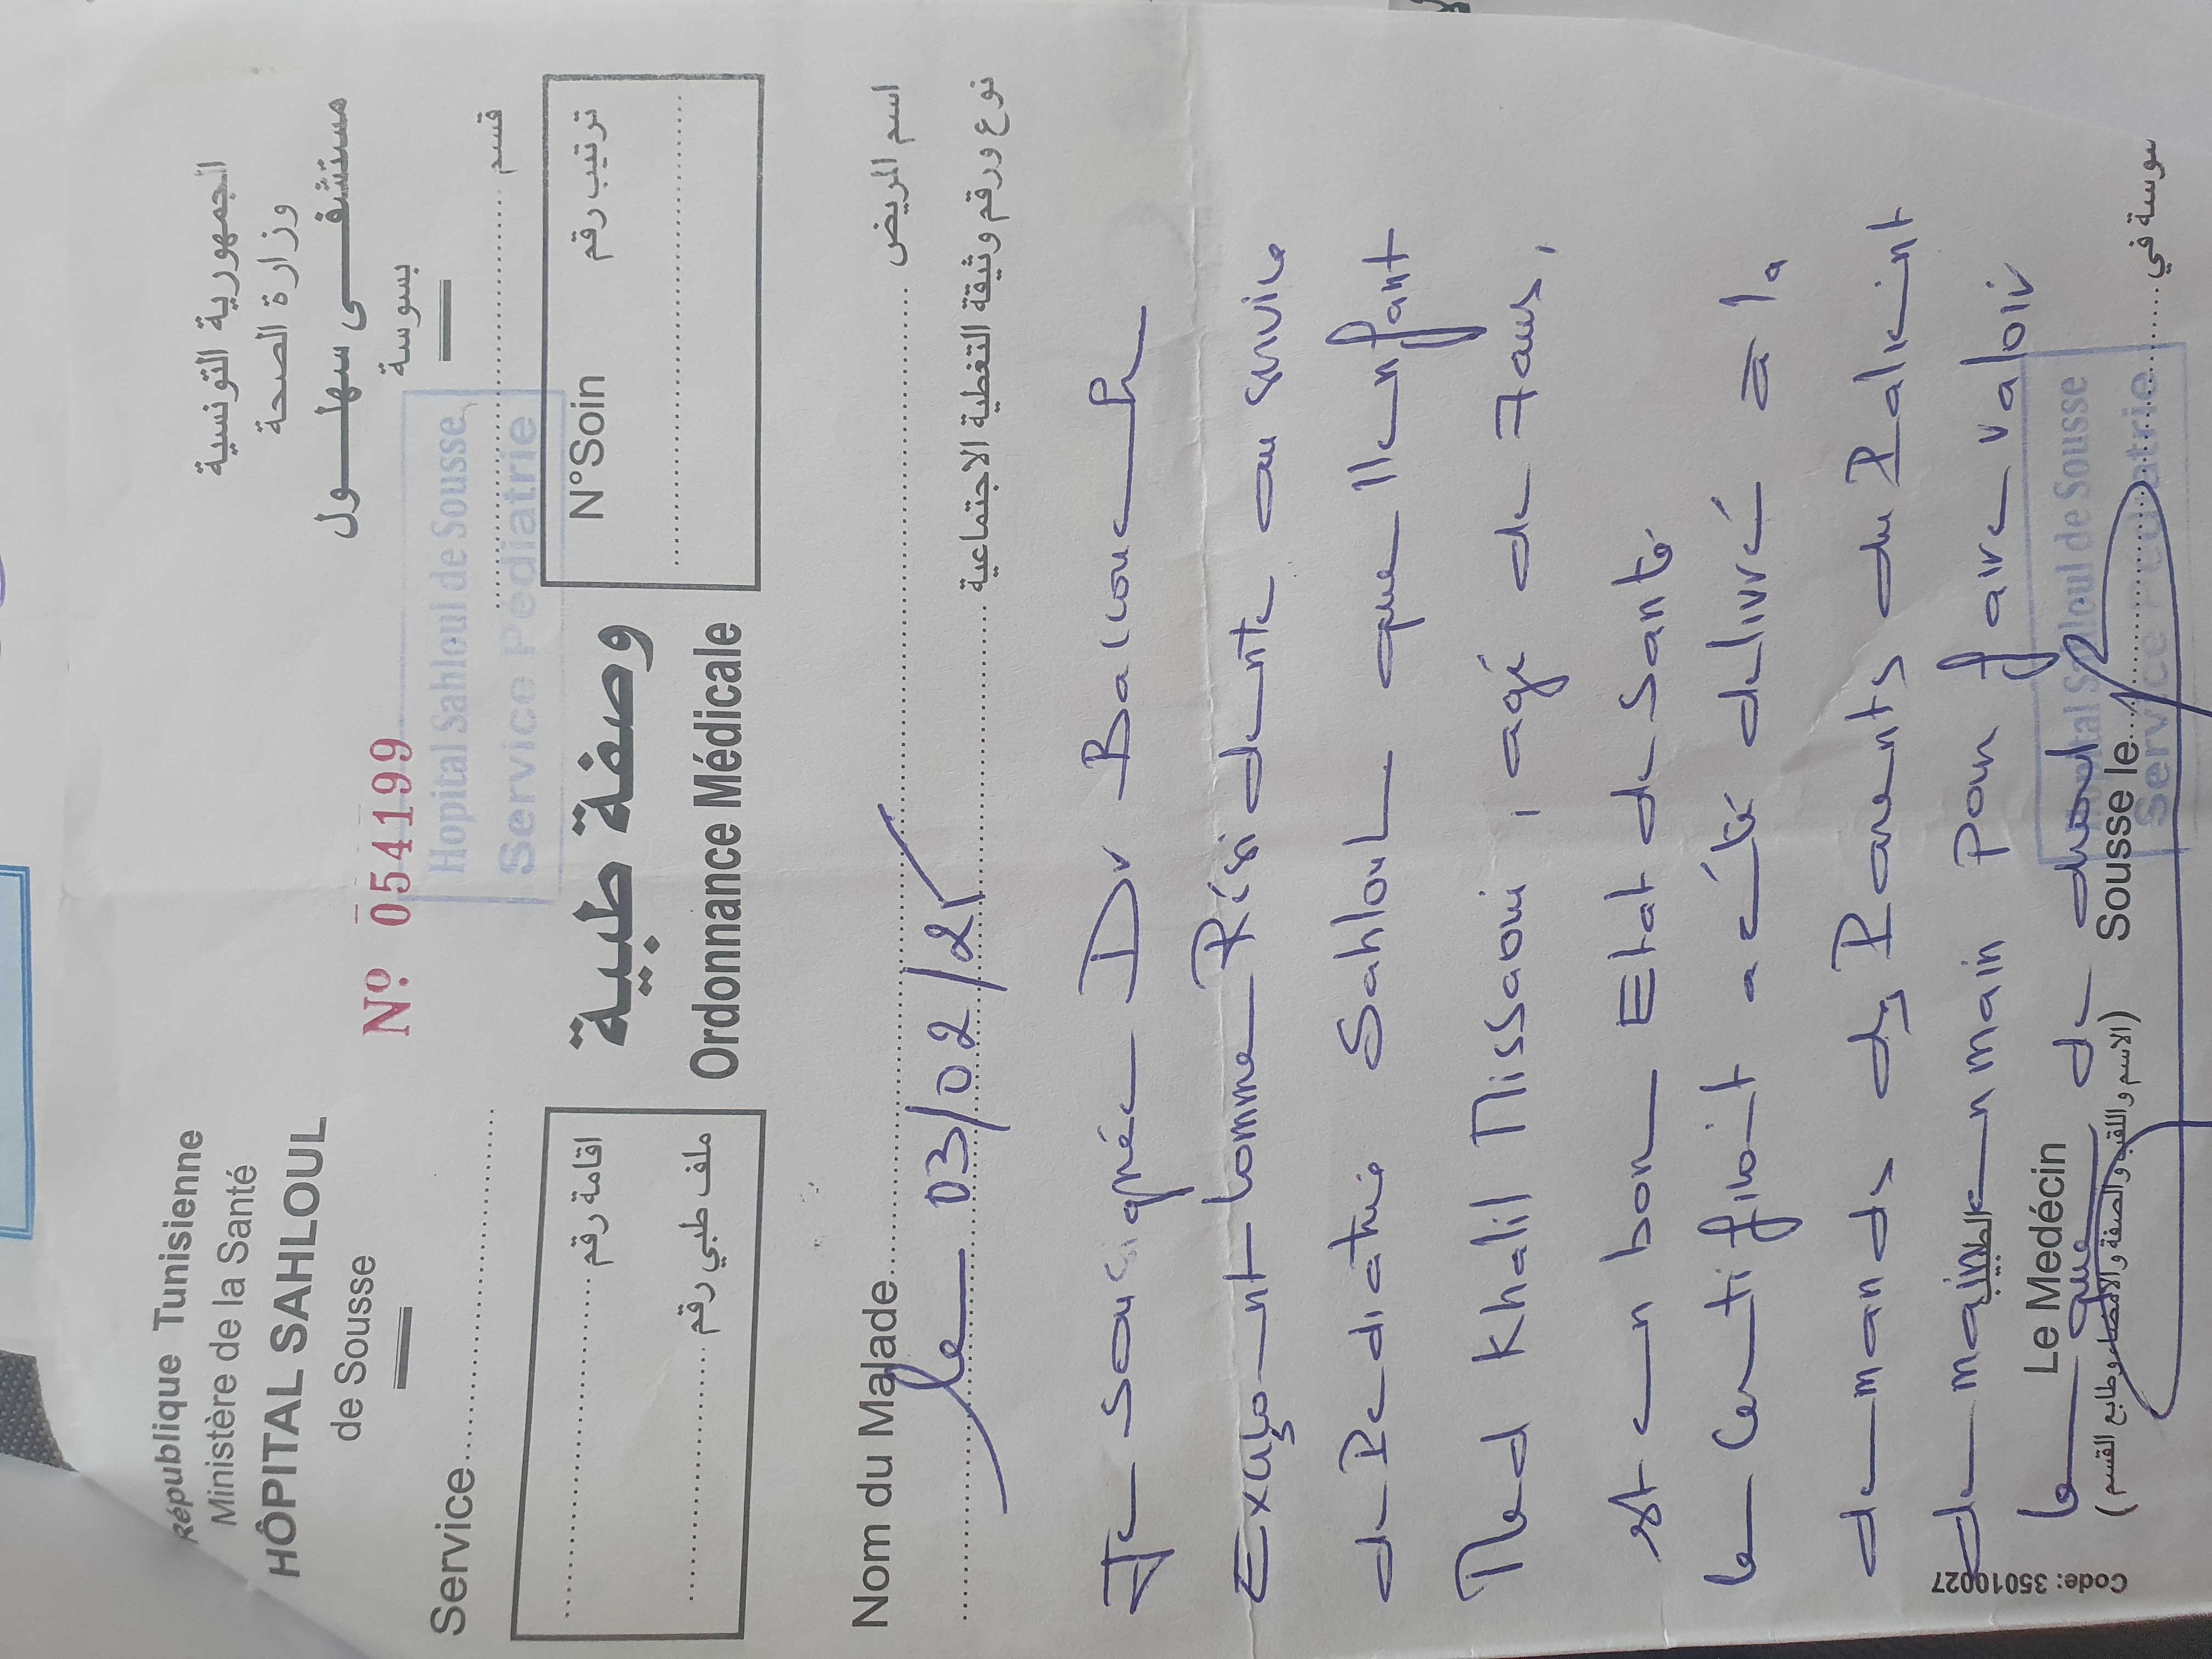 République Tunisienne
Ministère de la Santé
HÔPITAL SAHLOUL
de Sousse
الجمهورية التونسية
وزارة الصحة
مستشفى سهلول
بسوسة
Nº 054199
Service
قسم
Hopital Sahloul de Sousse
Service Pédiatrie
اقامة رقم
ملف طبي رقم
وصفة طبية
Ordonnance Médicale
N°Soin ترتيب رقم
Nom du Malade اسم المريض
نوع ورقم وثيقة التغطية الاجتماعية
le 03/02/2
Je sousignée Dr Baccouch
Exerçant comme Résidente au service
de Pediatrie Sahloul que l'enfant
Med Khalil Missaoui, agé de 7 ans,
est en bon Etat de santé
ce Certificat a été delivré à la
demande des Parents du Patient
demain en main pour faire valoir
ce que de droit
Le Medécin الطبيب
(الاسم واللقب والصفة والامضاء وطابع القسم)
Sousse le سوسة في
Hopital Sahloul de Sousse
Service Pédiatrie
Code: 35010027